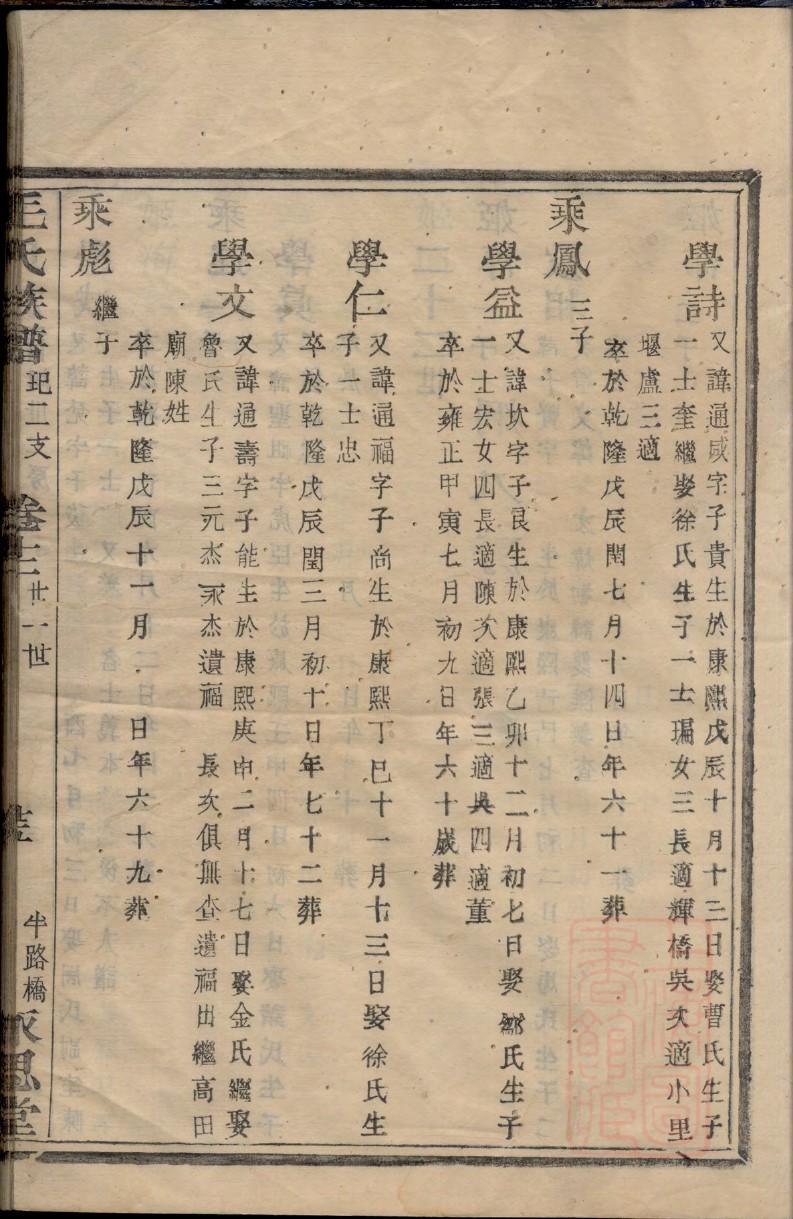 學詩
又諱通咸字子貴生於康熙戊辰十月十三日娶曹氏生子
一士奎繼娶徐氏生子一士瑞女三長適輝橋吳次適小里
堰盧三適
卒於乾隆戊辰閏七月十四日年六十一葬
乘鳳 三子
學益
又諱坎字子良生於康熙乙卯十二月初七日娶鄒氏生子
一士宏女四長適陳次適張三適吳四適董
卒於雍正甲寅七月初九日年六十歲葬
學仁
又諱通福字子尙生於康熙丁巳十一月十三日娶徐氏生
子一士忠
卒於乾隆戊辰閏三月初十日年七十二葬
學文
又諱通壽字子能生於康熙庚申二月十七日娶金氏繼娶
魯氏生子三元杰永杰遺福 長次俱無查遺福出繼高田
廟陳姓
卒於乾隆戊辰十一月 日年六十九葬
乘彪 繼子
王氏族譜 玘二支 卷十二 廿一世 半路橋 永思堂